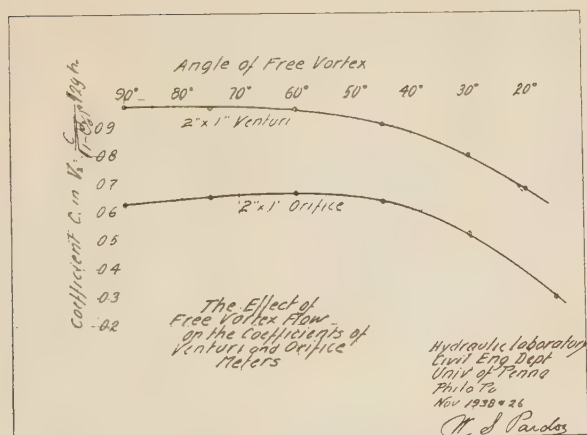 Angle of Free Vortex
90° 80° 70° 60° 50° 40° 30° 20°
Coefficient C. in V₂ = C
2gh
0.9
0.8
0.7
0.6
0.5
0.4
0.3
0.2
2" x 1" Venturi
2" x 1" Orifice
The Effect of
Free Vortex Flow
on the Coefficients of
Venturi and Orifice
Meters
Hydraulic laboratory
Civil Eng Dept
Univ of Penna
Phila Pa
Nov 1938 # 26
W. S. Pardoe